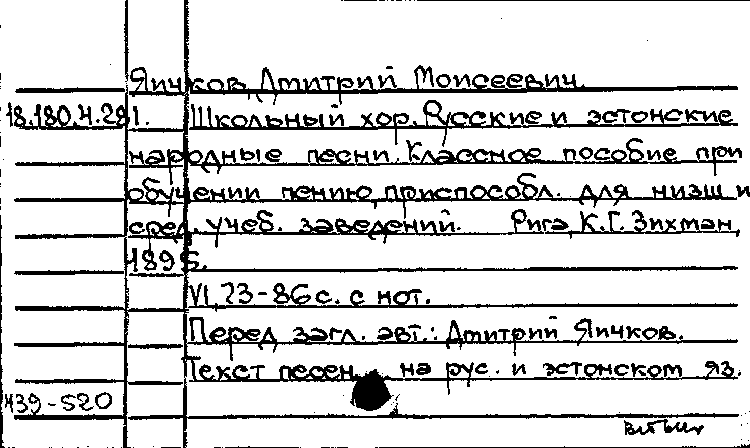 Яичков, Дмитрий Моисеевич.
18.180.4.291. Школьный хор. Русские и эстонские
народные песни. Классное пособие при
обучении пению, приспособл. для низш и
сред. учеб. заведений. Рига, К.Г. Зихман,
1895.
VI, 23-86 с. с нот.
Перед загл. авт.: Дмитрий Яичков.
Текст песен на рус. и эстонском яз.
М39-520